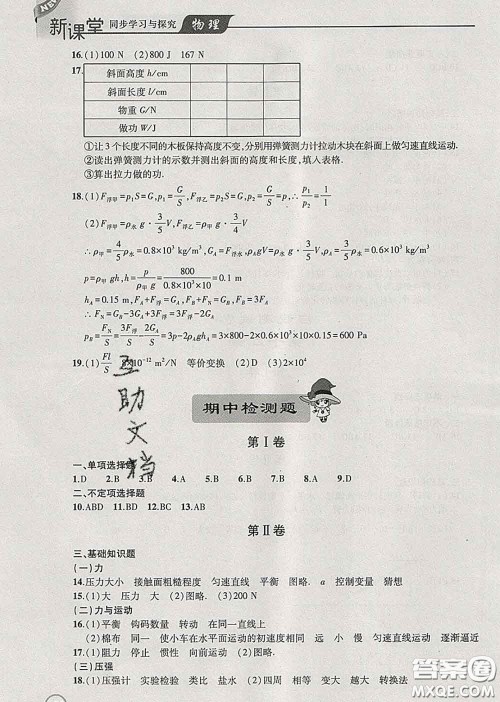 新课堂 同步学习与探究 物理
16.(1)100 N (2)800 J 167 N
17.
斜面高度 h/cm
斜面长度 l/cm
物重 G/N
做功 W/J
①让3个长度不同的木板保持高度不变,分别用弹簧测力计拉动木块在斜面上做匀速直线运动.
②读出弹簧测力计的示数并测出斜面的高度和长度,填入表格.
③算出拉力做的功.
18.(1)F浮甲=p₁S=G,p₁=G/S,F浮乙=p₂S=G,p₂=G/S=p₁,∴p₁/p₂=1/1
(2)F浮甲=ρ水 g·3/5V,F浮乙=ρ甲 g·3/4V
∴ρ甲=4/5ρ水=0.8×10³ kg/m³,F浮水=G,ρAgV=ρ水 g·3/5V,∴ρA=3/5ρ水=0.6×10³ kg/m³
p=ρ甲 gh,h=p/ρ甲 g=800/0.8×10³×10=0.1 m
hA=0.15 m,FA+F浮=GA,FN+F浮=GB,GB=3FA
∴FN=GB-3F浮+GA=3FA-3F浮+GA=3F浮-2GA
pB=FN/S=3F浮/S-2GA/S=3p-2ρAghA=3×800-2×0.6×10³×10×0.15=600 Pa
19.(1)Fl/S 8×10⁻¹² m²/N 等价变换 (2)D (3)2×10⁴
互助文档
期中检测题
第Ⅰ卷
一、单项选择题
1.D 2.B 3.B 4.A 5.A 6.B 7.A 8.A 9.D
二、不定项选择题
10.ABD 11.BD 12.BC 13.AB
第Ⅱ卷
三、基础知识题
(一)力
14.压力大小 接触面粗糙程度 匀速直线 平衡 图略. a 控制变量 猜想
15.(1)大 压力 大 (2)图略. (3)200 N
(二)力与运动
16.(1)平衡 钩码数量 转动 在同一直线上
(2)棉布 同一 使小车在水平面运动的初速度相同 远 小 慢 匀速直线运动 逐渐逼近
17.(1)阻力 停止 惯性 向前运动 (2)图略.
(三)压强
18.(1)压强计 实验检验 类比 盐水 (2)四周 相等 变大 越大 转换法
答案圈
MXQE.COM